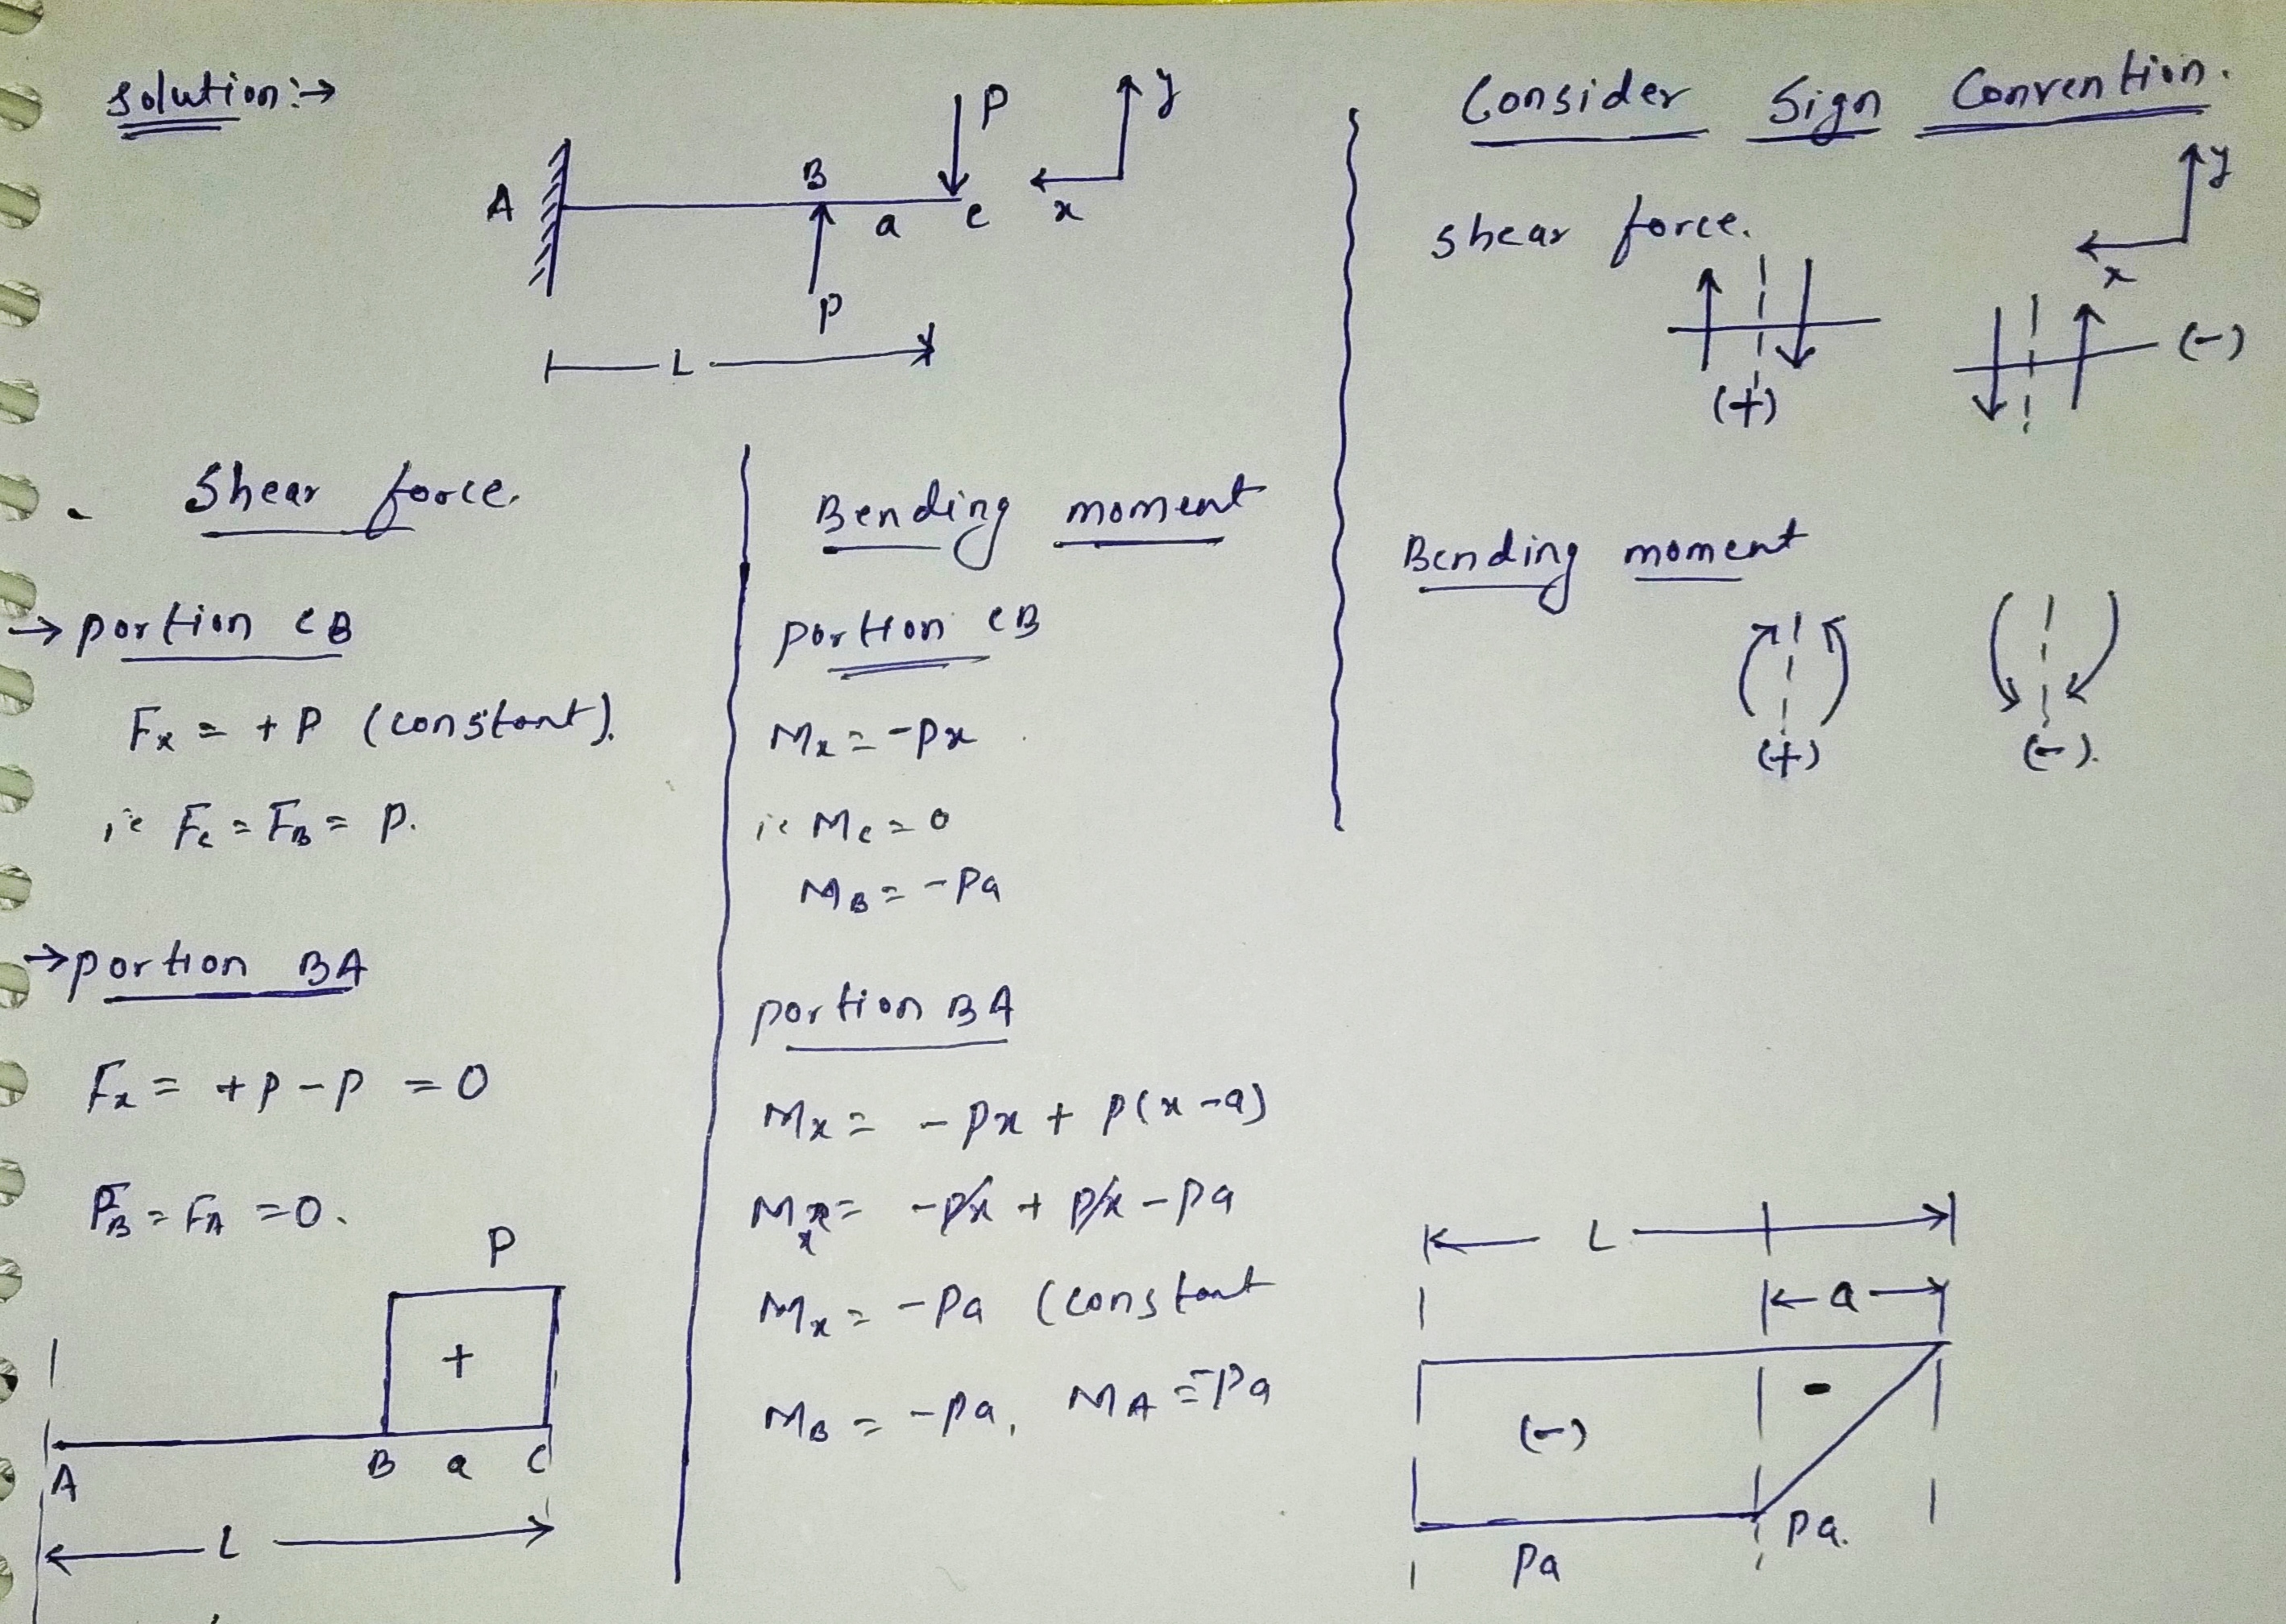 Solution:→
P
y
A
B
a
c
x
P
L
Consider Sign Convention.
y
shear force.
x
(+)
(-)
Bending moment
(+)
(-).
Shear force.
→ portion CB
Fx = +P (constant).
ie Fc = FB = P.
→ portion BA
Fx = +P - P = 0
FB = FA = 0.
P
+
A
B
a
C
L
Bending moment
portion CB
Mx = -Px
ie Mc = 0
MB = -Pa
portion BA
Mx = -Px + P(x-a)
Mx = -Px + Px - Pa
Mx = -Pa (constant
MB = -Pa, MA = -Pa
L
a
-
(-)
Pa.
Pa